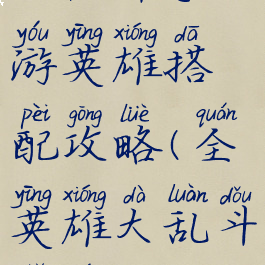 yóu yīng xióng dā
游英雄搭
pèi gōng lüè quán
配攻略(全
yīng xióng dà luàn dǒu
英雄大乱斗